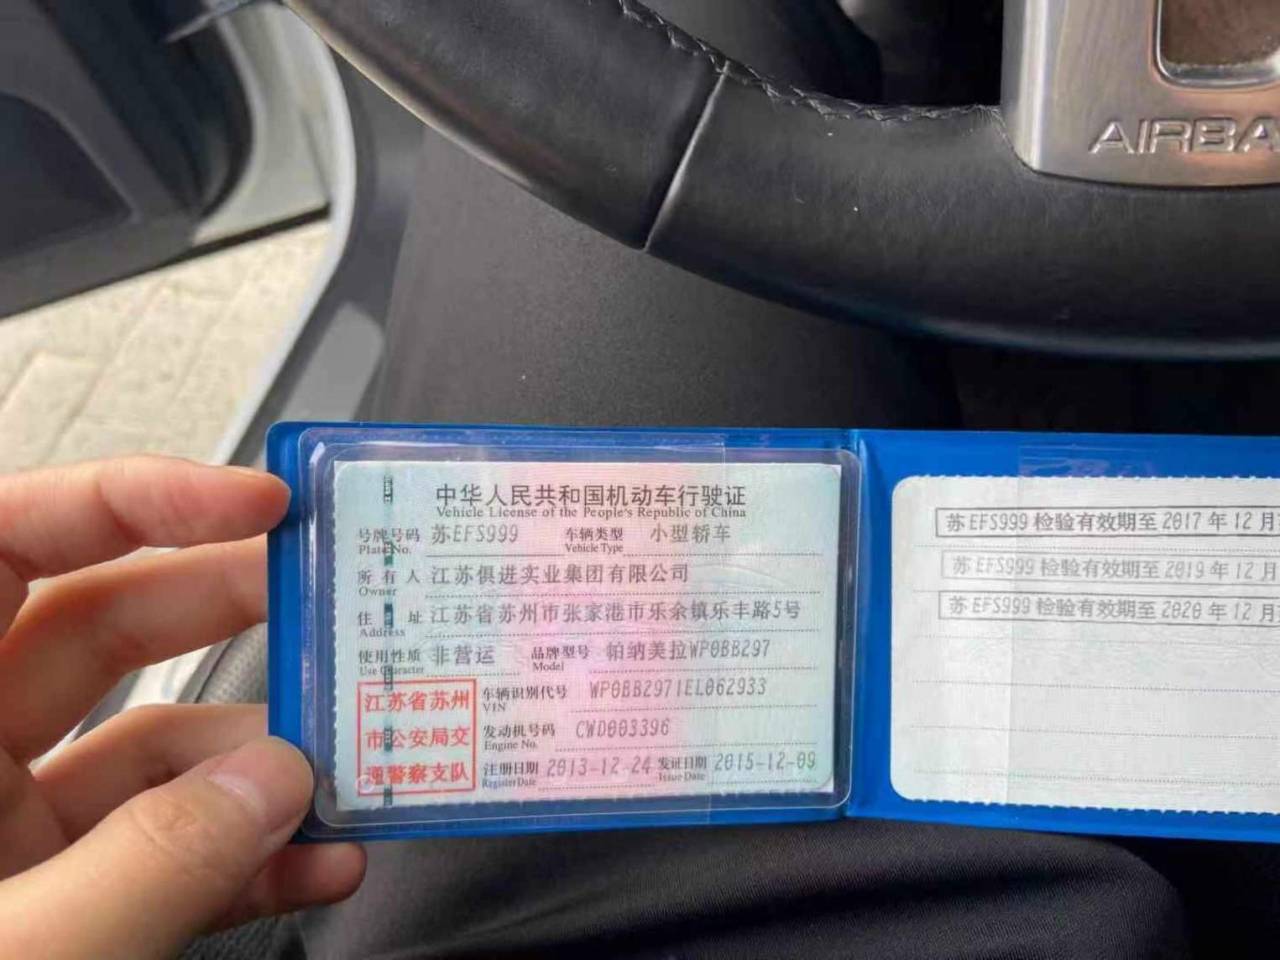 AIRBA
中华人民共和国机动车行驶证
Vehicle License of the People's Republic of China
号牌号码 苏EFS999 车辆类型 小型轿车
Plate No. Vehicle Type
所有人 江苏俱进实业集团有限公司
Owner
住址 江苏省苏州市张家港市乐余镇乐丰路5号
Address
使用性质 非营运 品牌型号 帕纳美拉WP0BB297
Use Character Model
江苏省苏州
市公安局交
理警察支队
车辆识别代号 WP0BB2971EL062933
VIN
发动机号码 CWD003396
Engine No.
注册日期 2013-12-24 发证日期 2015-12-09
Register Date Issue Date
苏EFS999 检验有效期至 2017 年 12 月
苏EFS999 检验有效期至 2019 年 12 月
苏EFS999 检验有效期至 2020 年 12 月